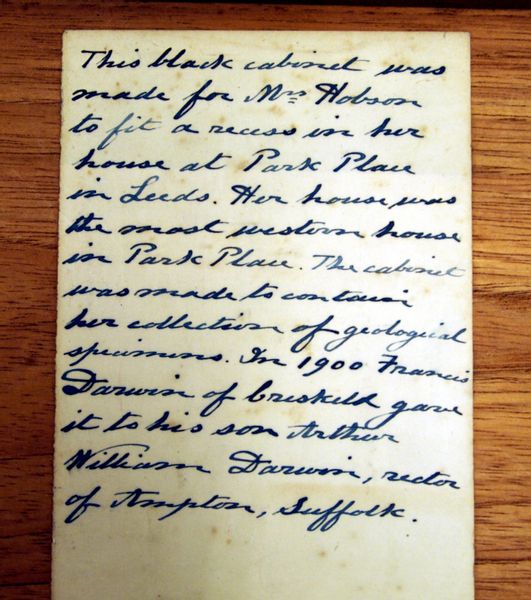 This black cabinet was
made for Mrs Hobson
to fit a recess in her
house at Park Place
in Leeds. Her house was
the most western house
in Park Place. The cabinet
was made to contain
her collection of geological
specimens. In 1900 Francis
Darwin of Creskeld gave
it to his son Arthur
William Darwin, rector
of Ampton, Suffolk.